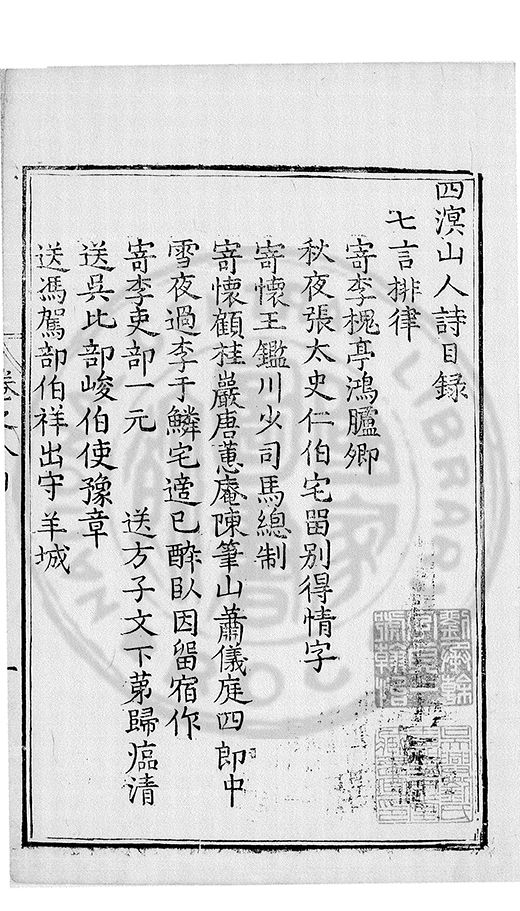 四溟山人詩目録
七言排律
寄李槐亭鴻臚卿
秋夜張太史仁伯宅留別得情字
寄懷王鑑川少司馬總制
寄懷顧桂巖唐蕙庵陳筆山蕭儀庭四郎中
雪夜過李于鱗宅適已醉臥因留宿作
寄李吏部一元　送方子文下第歸臨清
送吳比部峻伯使豫章
送馮駕部伯祥出守羊城
LIBRARY